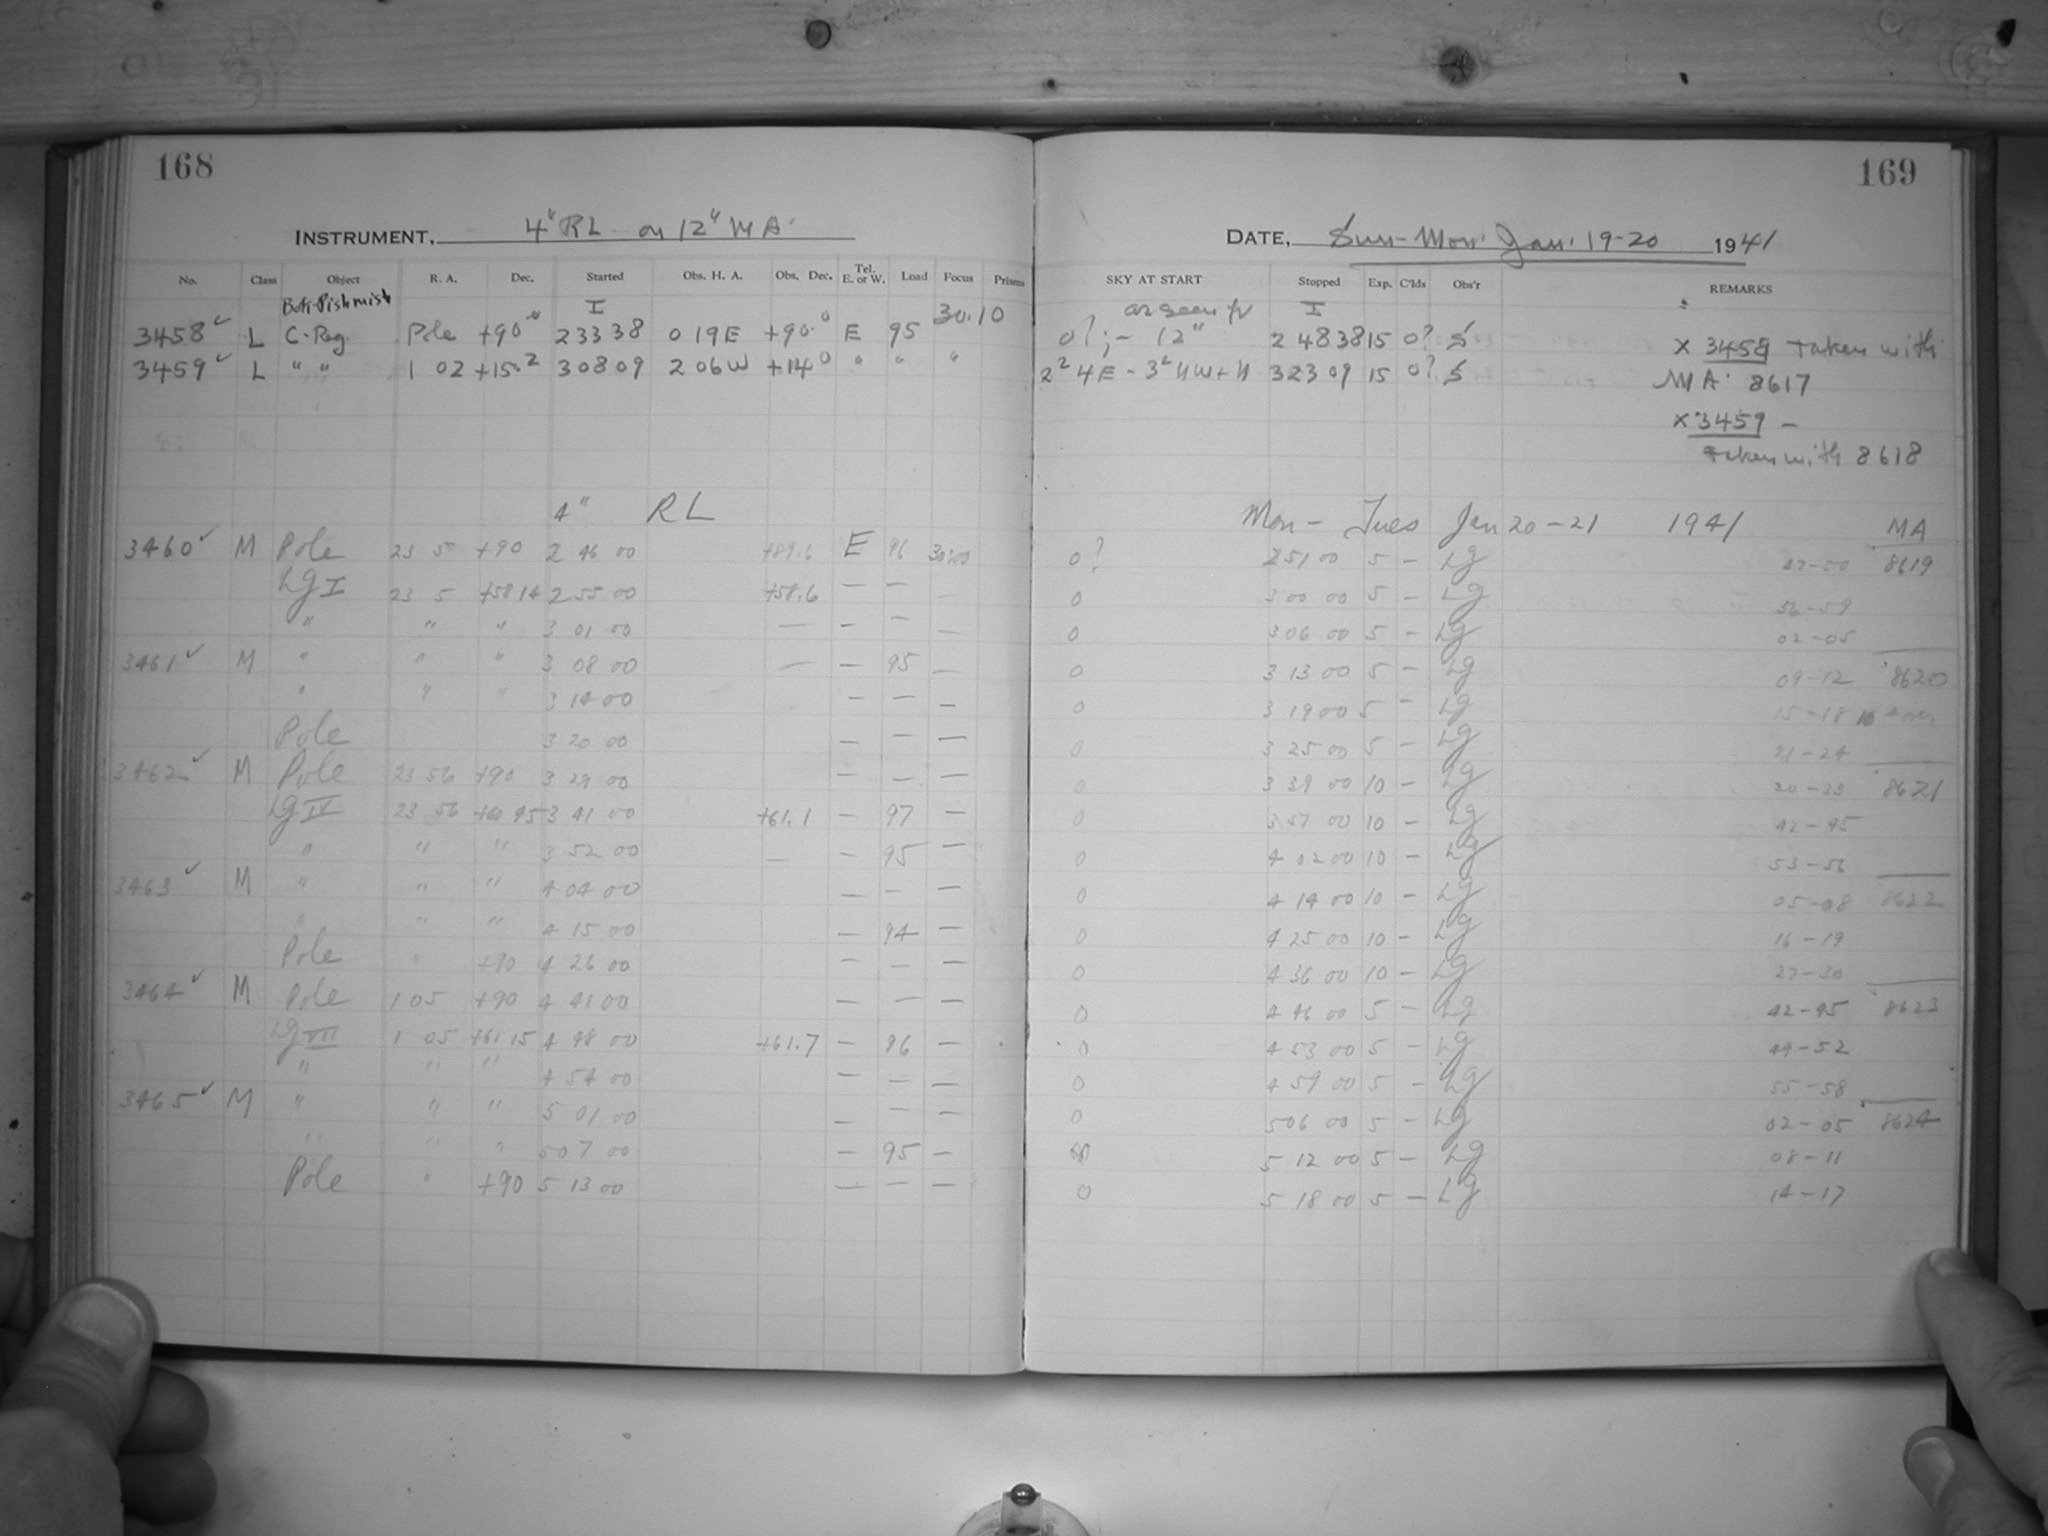 168
INSTRUMENT, 4" RL on 12" MA
No. Class Object R. A. Dec. Started Obs. H. A. Obs. Dec. Tel. E. or W. Load Focus Prisms
Bok-Pishmish I 30.10
3458 ✓ L C-Reg. Pole +90° 2 33 38 0 19E +90.0 E 95
3459 ✓ L " " 1 02 +15.2 3 08 09 2 06W +14.0 " " "
4" RL
3460 ✓ M Pole 23 5 +90 2 46 00 +89.6 E 96 30.00
Lg I 23 5 +58 14 2 55 00 +58.6 — — —
" " " 3 01 00 — — — —
3461 ✓ M " " " 3 08 00 — — 95 —
" " " 3 14 00 — — —
Pole 3 20 00 — — —
3462 ✓ M Pole 23 56 +90 3 29 00 — — —
Lg IV 23 56 +60 45 3 41 00 +61.1 — 97 —
" " " 3 52 00 — — 95 —
3463 ✓ M " " " 4 04 00 — — —
" " " 4 15 00 — 94 —
Pole " +90 4 26 00 — — —
3464 ✓ M Pole 1 05 +90 4 41 00 — — —
Lg VII 1 05 +61 15 4 48 00 +61.7 — 96 —
" " " 4 54 00 — — —
3465 ✓ M " " " 5 01 00 — — —
" " " 5 07 00 — 95 —
Pole " +90 5 13 00 — — —
169
DATE, Sun-Mon Jan. 19-20 1941
SKY AT START Stopped Exp. C'lds Obs'r REMARKS
as seen fr I
0?;- 12" 2 48 38 15 0? S x 3458 taken with
2² 4E - 3² 4W+4 3 23 09 15 0? S MA 8617
x 3459 —
taken with 8618
Mon - Tues Jan 20-21 1941 MA
0? 2 51 00 5 — Lg 47-50 8619
0 3 00 00 5 — Lg 56-59
0 3 06 00 5 — Lg 02-05
0 3 13 00 5 — Lg 09-12 8620
0 3 19 00 5 — Lg 15-18
0 3 25 00 5 — Lg 21-24
0 3 39 00 10 — Lg 30-33 8621
0 3 51 00 10 — Lg 42-45
0 4 02 00 10 — Lg 53-56
0 4 14 00 10 — Lg 05-08 8622
0 4 25 00 10 — Lg 16-19
0 4 36 00 10 — Lg 27-30
0 4 46 00 5 — Lg 42-45 8623
0 4 53 00 5 — Lg 49-52
0 4 59 00 5 — Lg 55-58
0 5 06 00 5 — Lg 02-05 8624
0 5 12 00 5 — Lg 08-11
0 5 18 00 5 — Lg 14-17